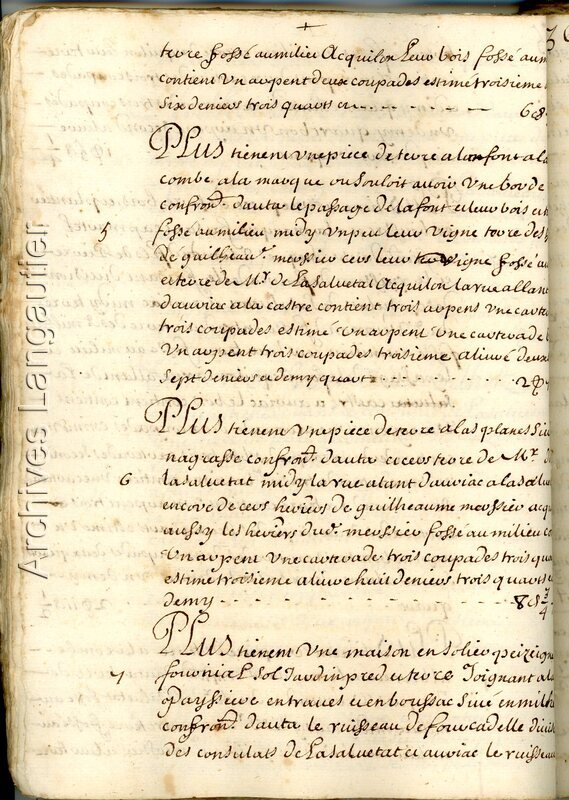 terre fossé au milieu Acquilon leur bois fossé au m
contient un arpent deux coupades estimé troisieme
six deniers trois quarts cy - - - - 6 d
Plus tienent une piece de terre a lanfont a la
combe a la marque ou souloit avoir une borde
confron. d'auta le passage de la font et leur bois et
5 fossé au milieu midy un peu leur vigne terre des
de guilheau. meossier cers leur vigne fossé au
et terre de Mr. de Lasalvetat Acquilon la rue allant
dauriac a la castre contient trois arpens une carterade
trois coupades estimé un arpent une carterade
un arpent trois coupades troisieme alivré deux
sept deniers et demy quart - - - 2
Plus tienent une piece de terre a las planes
nagrasse confron. dauta et cers terre de Mr.
6 lasalvetat midy la rue alant dauriac a la
encore de ces heriers de guilheaume meossier acq
aussy les heriers dud. meossier fossé au milieu
un arpent une carterade trois coupades trois qua
estimé troisieme alivre huit deniers trois quarts
demy - - - - 8 d 3/4
Plus tienent une maison en solier peizeigne
fournial sol Jardin pred et terre Joignant a la
7 paissiere entraves et en boussac
confron. dauta le ruisseau de fourcadelle divis
des consulats de Lasalvetat et auriac le ruisseau
Archives Langautier